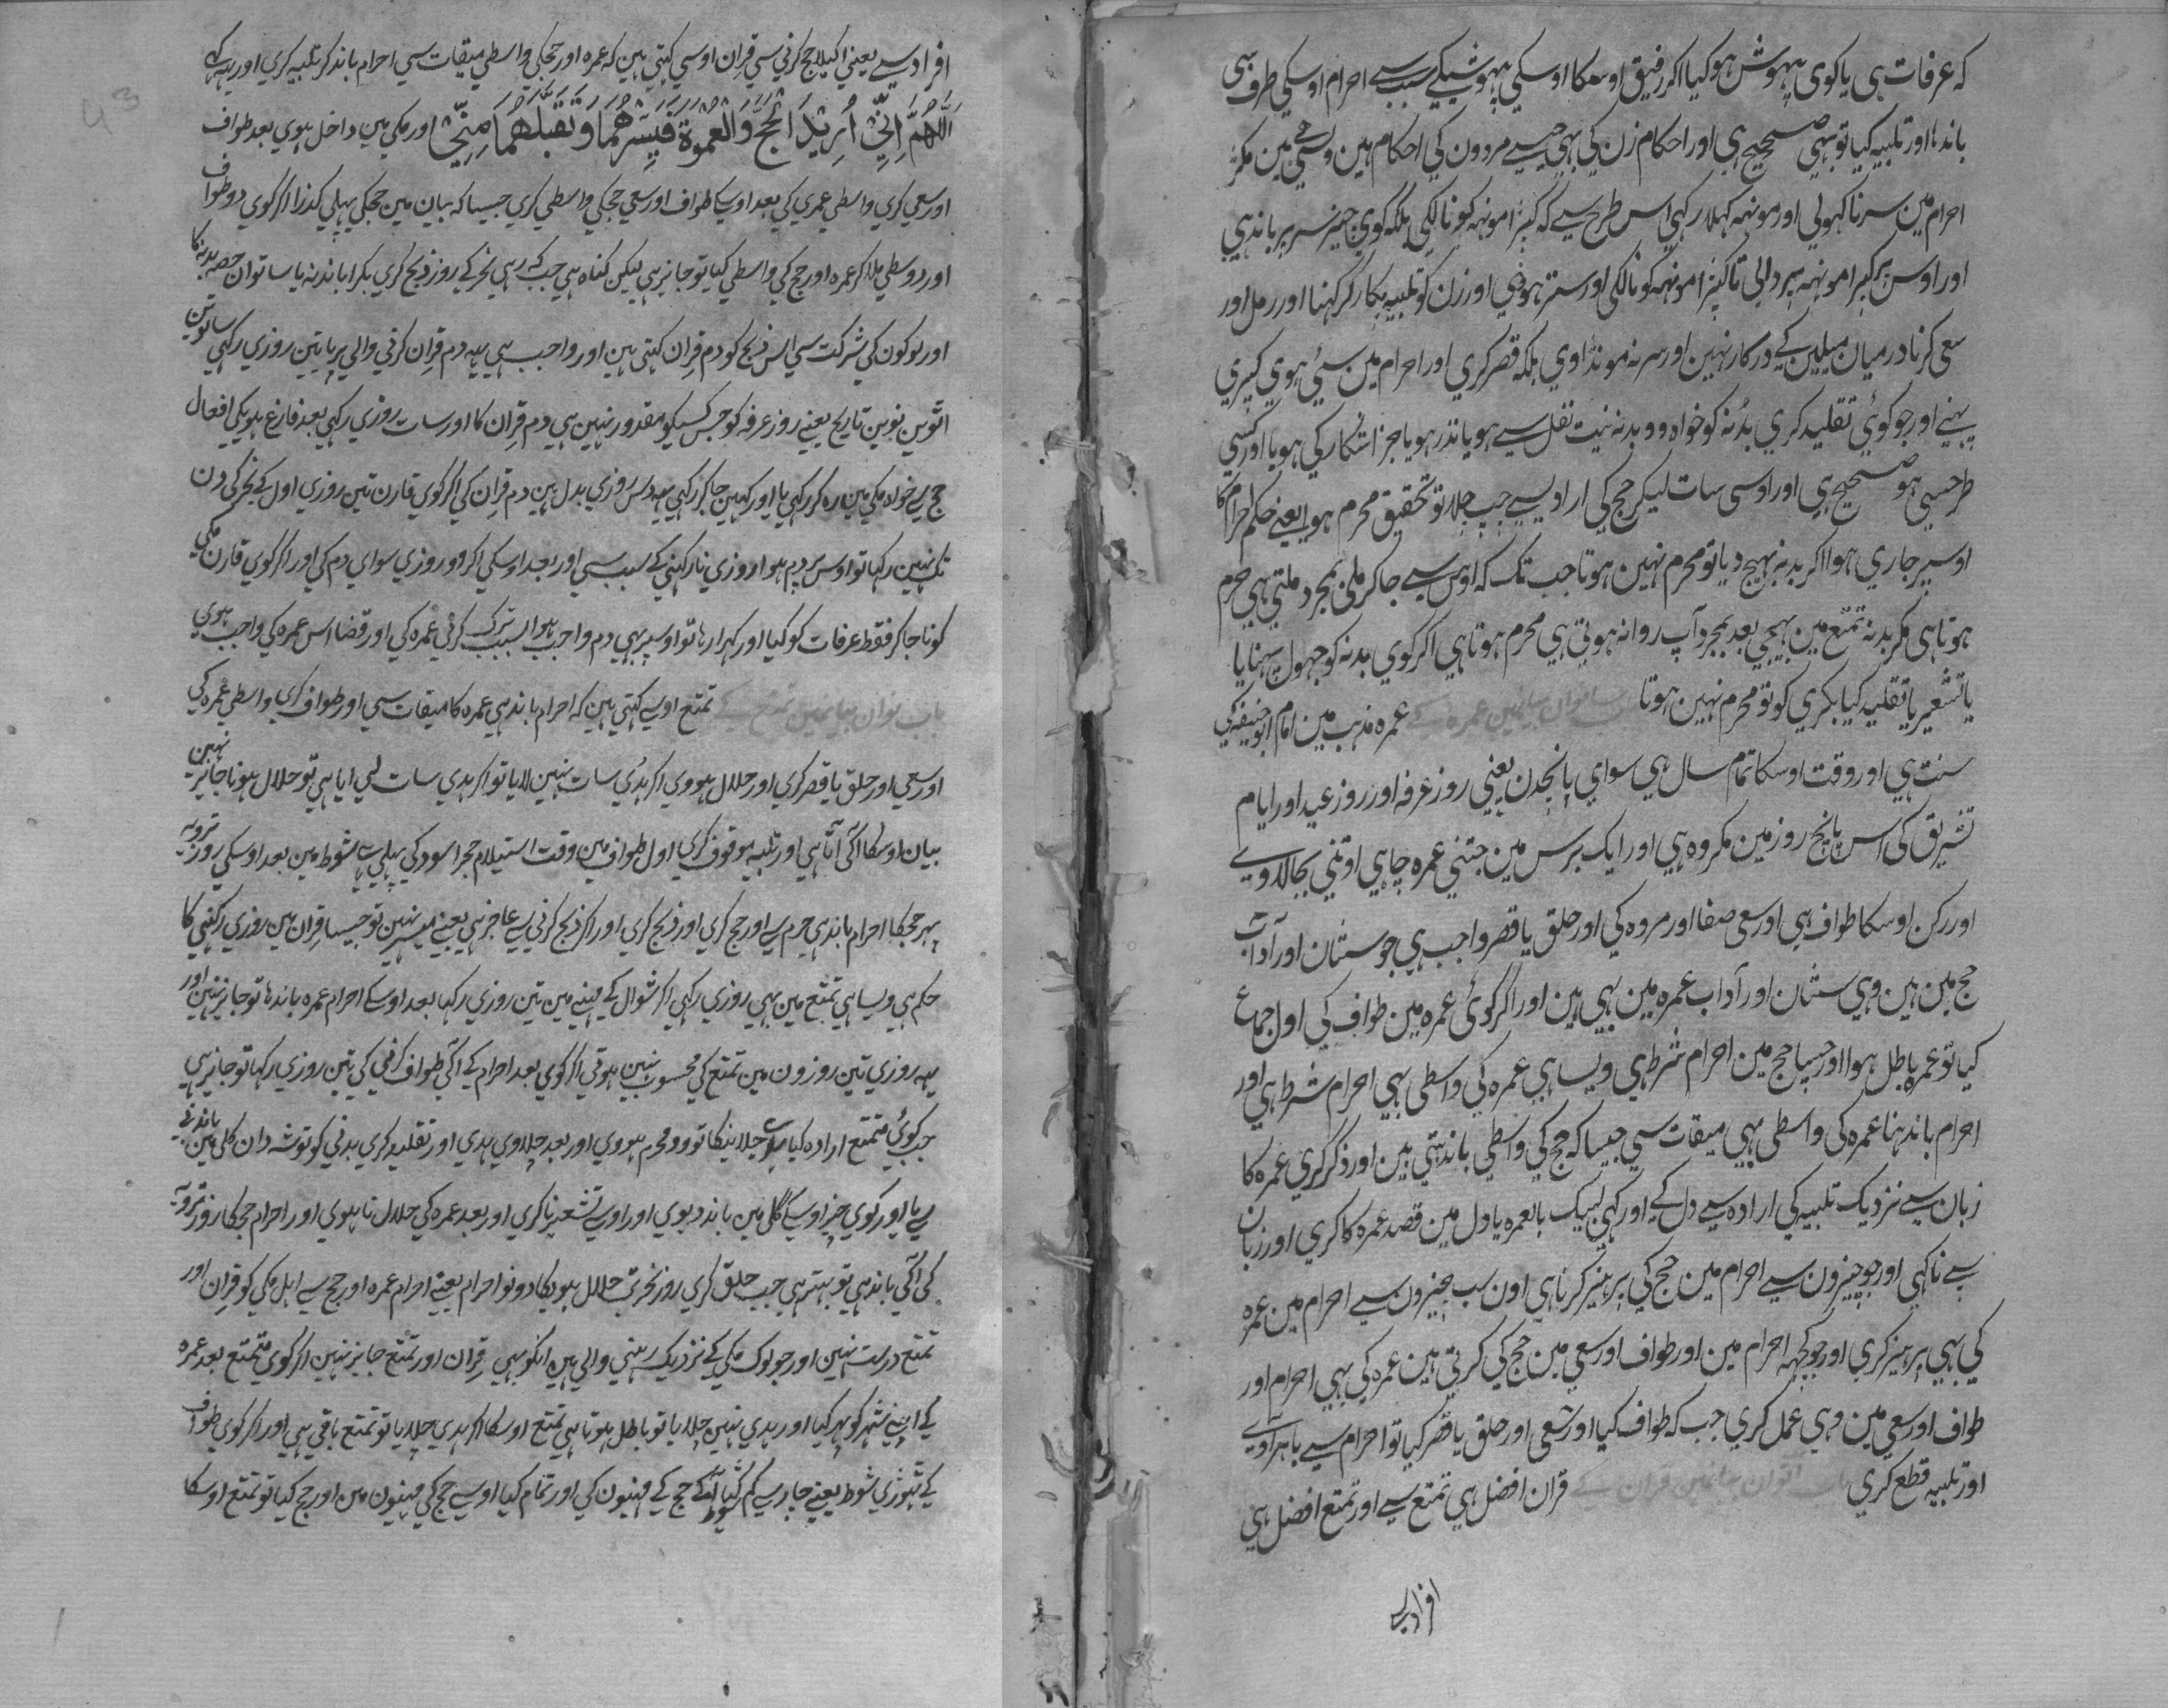 که عرفات هی یا کوی بیهوش هو کیا اکر رفیق اوسکا اوسکی بیهوشیکی سبب سے احرام اوسکی طرف سی
باندها اور تلبیه کیا تو بہی صحیح ہی اور احکام زن کی بہی جیسے مردون کی احکام ہین ویسی ہین مکر
احرام مین سر نا کہولی اور مونہه کہلا رکہی اس طرح سے که کپڑا مونہه کو نا لکی بلکه کوی چیز سر پر باندہی
اور اوس پر کپڑا مونہه پر دالی تا کپڑا مونہه کو نا لکی اور ستر ہووی اور زن کو تلبیه پکار کر کہنا اور رمل اور
سعی کرنا درمیان میلین کے درکار نہین اور سر نه مونڈاوی بلکه قصر کری اور احرام مین سیئی ہوی کپڑی
پہنے اور جو کوئی تقلید کری بدنه کو خواه وو بدنه نیت نفل سے ہو یا نذر ہو یا جزا شکار کی ہو یا اور کسی
طرحسی ہو صحیح ہی اور اوسی سات لیکر حج کی ارادیسے جب چلا تو تحقیق محرم ہوا یعنے حکم احرام کا
اوسپر جاری ہوا اکر بدنه بہیج دیا تو محرم نہین ہوتا جب تک که اوس سے جا کر ملی بمجرد ملتی ہی محرم
ہوتا ہی مکر بدنه تمتع مین بہیجی بعد بمجرد آپ روانه ہوتی ہی محرم ہوتا ہی اکر کوی بدنه کو جہول پہنایا
یا تشعیر یا تقلید کیا بکری کو تو محرم نہین ہوتا ساتوان بیانمین عمره کے عمره مذہب مین امام ابو حنیفه کی
سنت ہی اور وقت اوسکا تمام سال ہی سوای پانچدن یعنی روز عرفه اور روز عید اور ایام
تشریق کی اس پانچ روز مین مکروه ہی اور ایک برس مین جتنی عمره چاہی اوتنی بجالاوے
اور رکن اوسکا طواف ہی اور سعی صفا اور مروه کی اور حلق یا قصر واجب ہی جو سنتان اور آداب
حج مین ہین وہی سنتان اور آداب عمره مین بہی ہین اور اکر کوئی عمره مین طواف کی اول جماع
کیا تو عمره باطل ہوا اور جیسا حج مین احرام شرط ہی ویسا ہی عمره کی واسطی بہی احرام شرط ہی اور
احرام باندہنا عمره کی واسطی بہی میقات سی جیسا که حج کی واسطی باندہتی ہین اور ذکر کری عمره کا
زبان سے نزدیک تلبیه کی اراده سے دل کے اور کہی لبیک بالعمره یا دل مین قصد عمره کا کری اور زبان
سے نا کہی اور جو چیزون سے احرام مین حج کی پرہیز کرنا ہی اون سب چیزون سے احرام مین عمره
کی بہی پرہیز کری اور جو کچہه احرام مین اور طواف اور سعی مین حج کی کرتی ہین عمره کی بہی احرام اور
طواف اور سعی مین وہی عمل کری جب که طواف کیا اور سعی اور حلق یا قصر کیا تو احرام سے باہر آوے
اور تلبیه قطع کری باب اٹوان بیانمین قران کے قران افضل ہی تمتع سے اور تمتع افضل ہی
افراد سے
افراد سے یعنی اکیلا حج کرنی سی قران اوسی کہتی ہین که عمره اور حجکی واسطی میقات سی احرام باند کر تلبیه کری اور یہه کہی
اَللّٰهُمَّ اِنِّیْ اُرِیْدُ الْحَجَّ وَالْعُمْرَةَ فَیَسِّرْهُمَا وَتَقَبَّلْهُمَا مِنِّیْ اور مکی مین داخل ہوی بعد طواف
اور سعی کری واسطی عمری کی بعد اوسکا طواف اور سعی حجکی واسطی کری جیسا که بیان مین حجکی پہلی کذرا اکر کوی دو طواف
اور دو سعی ملا کر عمره اور حج کی واسطی کیا تو جایز ہی لیکن کناه ہی جب که رمی نحر کے روز ذبح کری بکرا یا بدنه یا ساتوان حصه بدنه کا
اور لوکون کی شرکت سی اس ذبح کو دم قران کہتی ہین اور واجب ہی یہه دم قران کرنی والی پر یا تین روزی رکہی ساتوین
اٹوین نوین تاریخ یعنے روز عرفه کو جس کسیکو مقدور نہین ہی دم قران کا اور سات روزی رکہی بعد فارغ ہونیکی افعال
حج سے خواه مکی مین ره کر رکہی یا اور کہین جا کر رکہی یہه دس روزی بدل ہین دم قران کی اکر کوی قارن تین روزی اول کے نحر کی دن
تک نہین رکہا تو اوس پر دم ہوا روزی نا رکہنی کے سبب سی اور بعد اوسکی اکر وو روزی سوای دم کی اور اکر کوی قارن مکی
کو نا جا کر فقط عرفات کو کیا اور کہڑا رہا تو اوسپر بہی دم واجب ہوا بسبب ترک کرنی عمره کی اور قضا اس عمره کی واجب ہوی
باب نوان بیانمین تمتع کے تمتع اوسے کہتی ہین که احرام باندہی عمره کا میقات سی اور طواف کری واسطی عمره کی
اور سعی اور حلق یا قصر کری اور حلال ہووی اکر ہدی سات نہین لایا تو اکر ہدی سات لی ایا ہی تو حلال ہونا جایز نہین
بیان اوسکا آکی آتا ہی اور تلبیه موقوف کری اول طواف مین وقت استیلام حجر اسود کی پہلی شوط مین بعد اوسکی روز ترویه
پہر حجکا احرام باندہی حرم سے اور حج کری اور ذبح کری اور اکر ذبح کرنی سے عاجز ہی یعنے میسر نہین تو جیسا قران مین روزی رکہنی کا
حکم ہی ویسا ہی تمتع مین بہی روزی رکہی اکر شوال کے مہنیه مین تین روزی رکہا بعد اوسکے احرام عمره باندها تو جایز نہین اور
یہه روزی تین روزون مین تمتع کی محسوب نہین ہوتی اکر کوی بعد احرام کے آکی طواف کرنی کی تین روزی رکہا تو جایز ہی
جب کوئی متمتع اراده کیا ہدی چلانیکا تو وو محرم ہووی اور بعد چلاوی ہدی اور تقلید کری بدنی کو توشه دان کلی مین باندنے
سے یا اور کوی چیز اوسکے گلی مین باند دیوی اور اوسے تشعیر نا کری اور بعد عمره کی حلال نا ہووی اور احرام حجکا روز ترویه
کی آکی باندہی تو بہتر ہی جب حلق کری روز نحر تب حلال ہویکا دونو احرام یعنے احرام عمره اور حج سے اہل مکی کو قران اور
تمتع درست نہین اور جو لوک مکی کے نزدیک رہنی والی ہین انکو بہی قران اور تمتع جایز نہین اکر کوی متمتع بعد عمره
کے اپنے شہر کو پہر کیا اور ہدی نہین چلایا تو باطل ہوتا ہی تمتع اوسکا اکر ہدی چلایا تو تمتع باقی ہی اور اکر کوی طواف
کے تہوڑی شوط یعنے چار سے کم کیا آکے حج کے مہنیون کی اور تمام کیا اوسے حج کی مہنیون مین اور حج کیا تو تمتع اوسکا